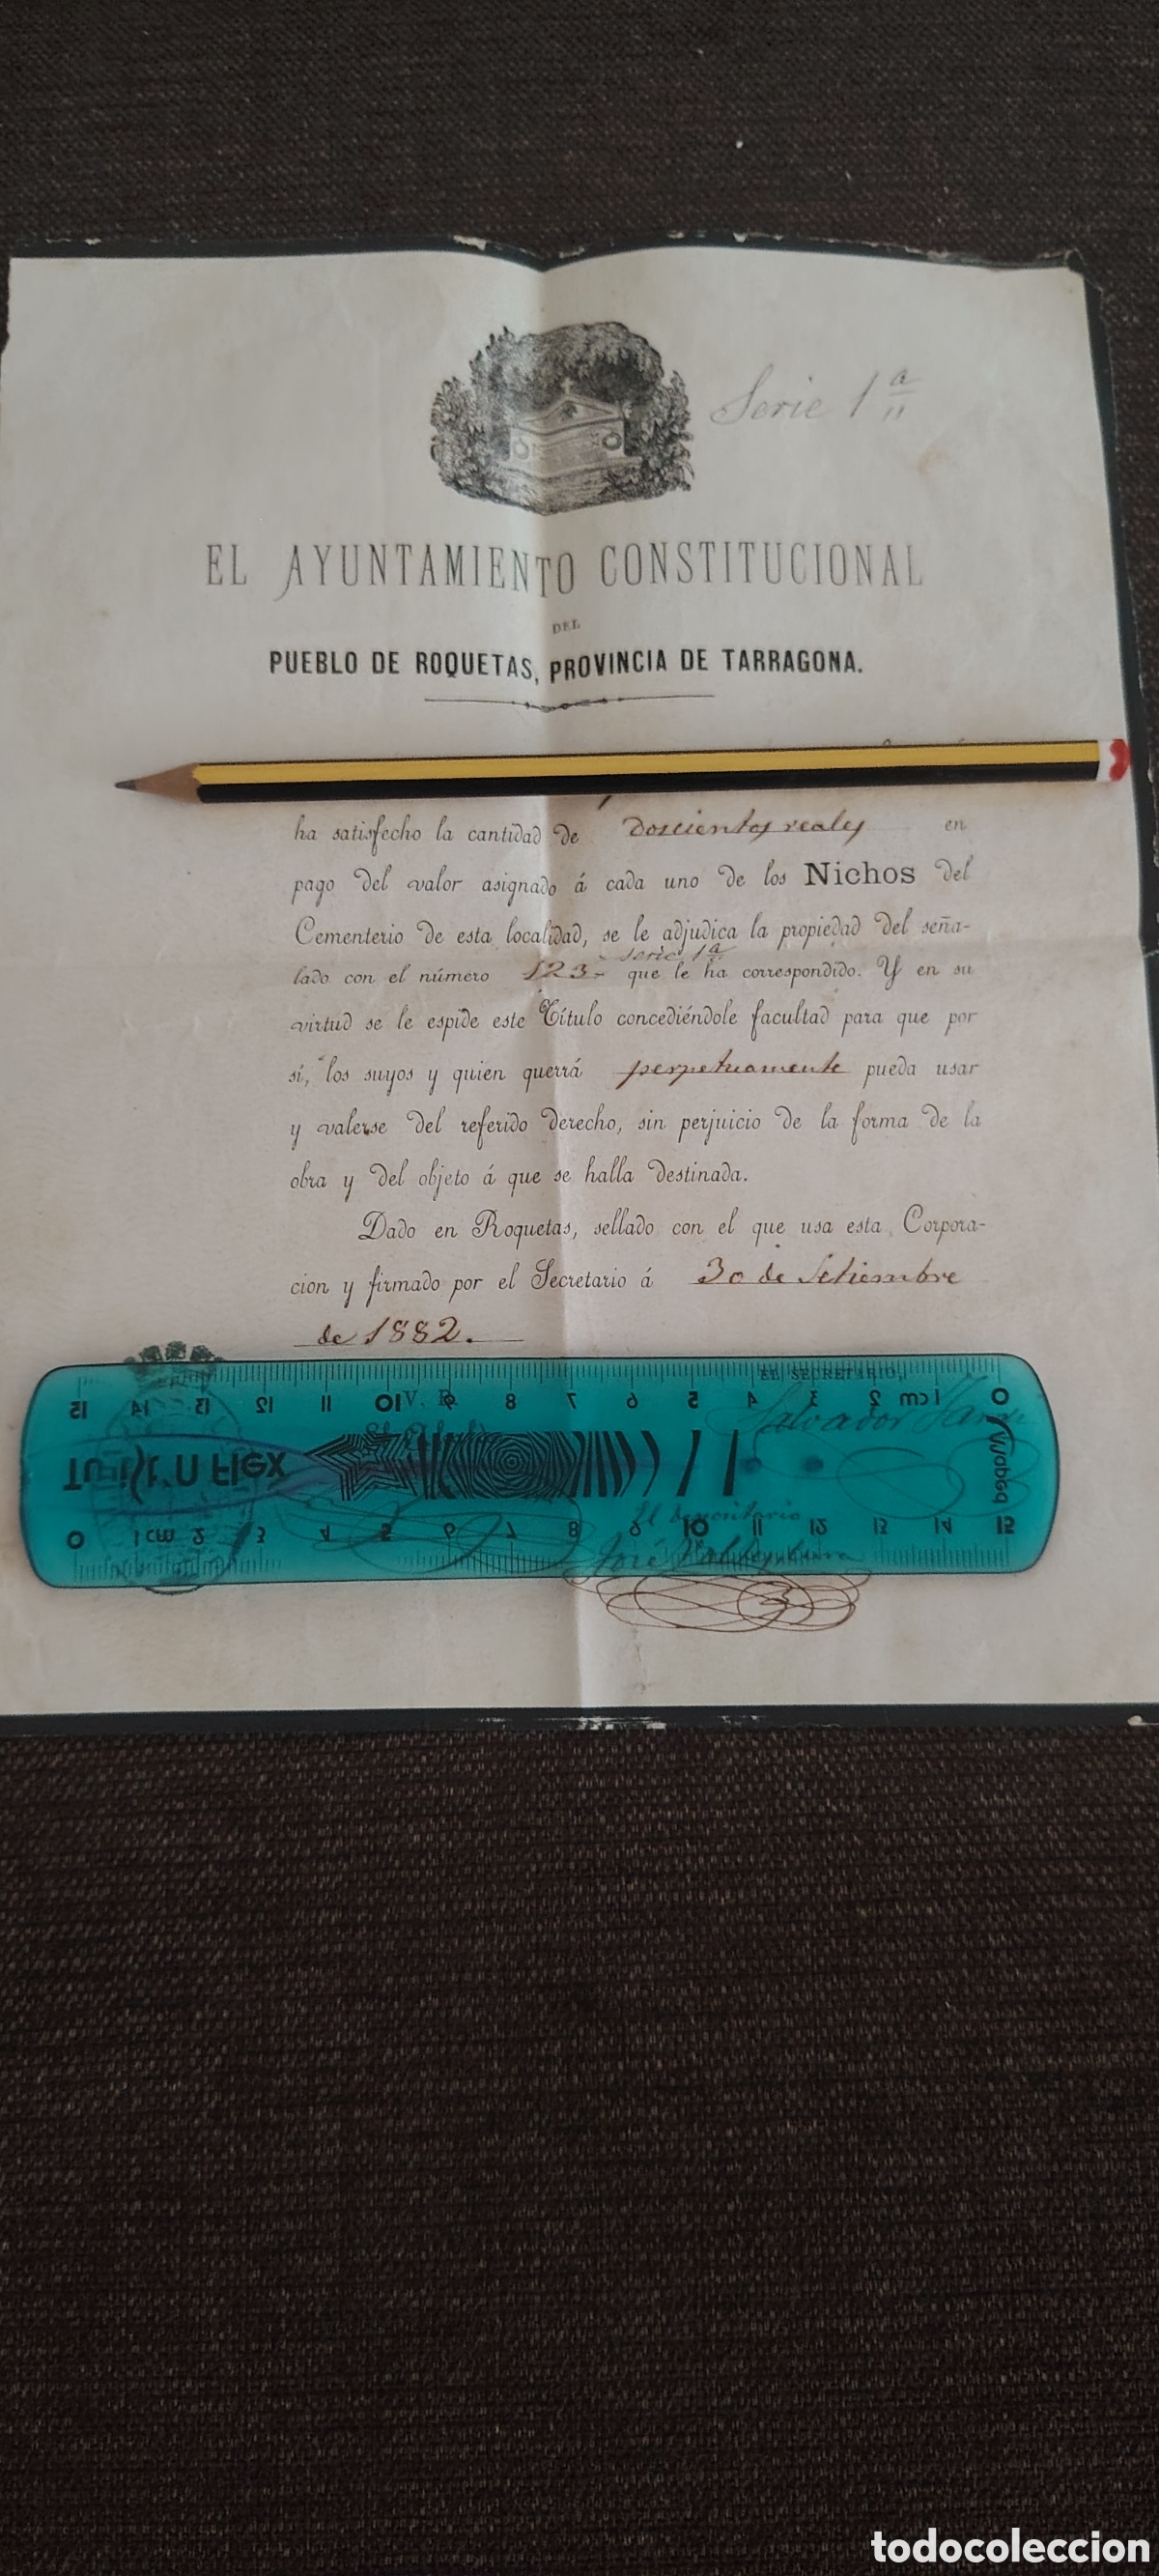 Serie 1ª
EL AYUNTAMIENTO CONSTITUCIONAL
DEL
PUEBLO DE ROQUETAS, PROVINCIA DE TARRAGONA.
ha satisfecho la cantidad de doscientos reales en
pago del valor asignado á cada uno de los Nichos del
Cementerio de esta localidad, se le adjudica la propiedad del seña-
serie 1ª
lado con el número 123 que le ha correspondido. Y en su
virtud se le espide este Título concediéndole facultad para que por
sí, los suyos y quien querrá perpetuamente pueda usar
y valerse del referido derecho, sin perjuicio de la forma de la
obra y del objeto á que se halla destinada.
Dado en Roquetas, sellado con el que usa esta Corpora-
cion y firmado por el Secretario á 30 de Setiembre
de 1882.
EL SECRETARIO,
15 14 13 12 11 10 9 8 7 6 5 4 3 2 1cm 0
V. B.
El Alcalde
Salvador
Twist'n Flex
Maped
El depositario
0 1cm 2 3 4 5 6 7 8 9 10 11 12 13 14 15
José
todocoleccion